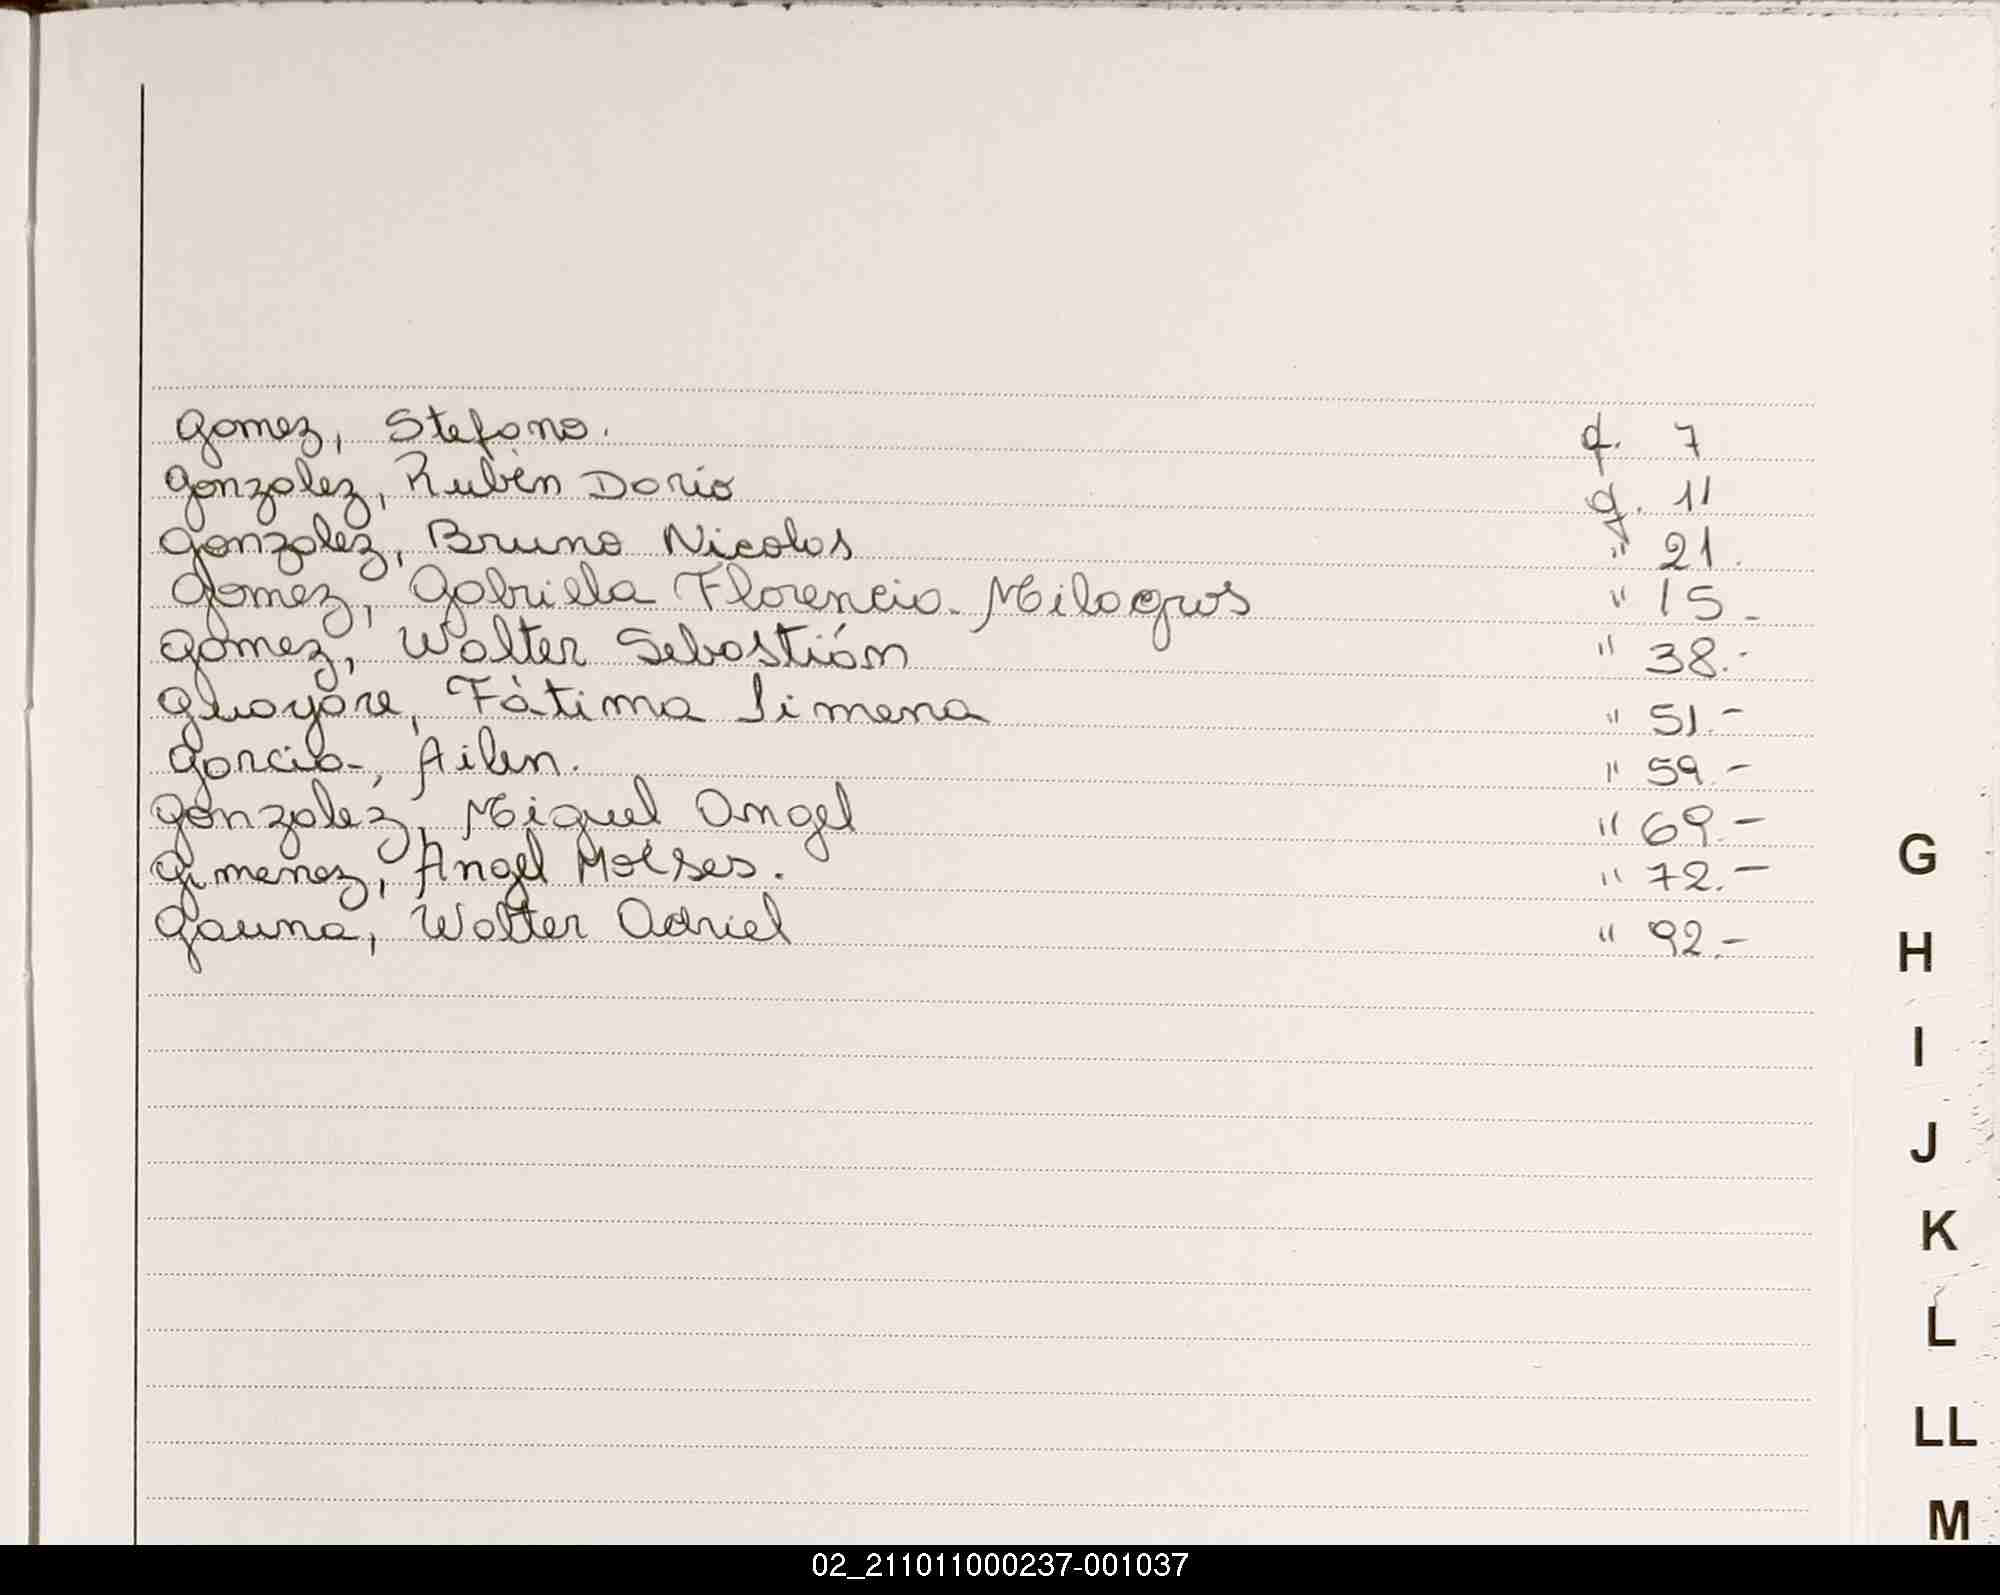 Gomez, Stefano. f. 7
Gonzalez, Rubén Dario g. 11
Gonzalez, Bruno Nicolas " 21.
Gomez, Gabriela Florencia Milagros " 15.-
Gomez, Walter Sebastián " 38.-
Guayare, Fátima Jimena " 51.-
Garcia, Ailen. " 59.-
Gonzalez, Miguel Angel " 69.-
Gimenez, Angel Moises. " 72.-
Gauna, Walter Adriel " 92.-
G
H
I
J
K
L
LL
M
02_211011000237-001037